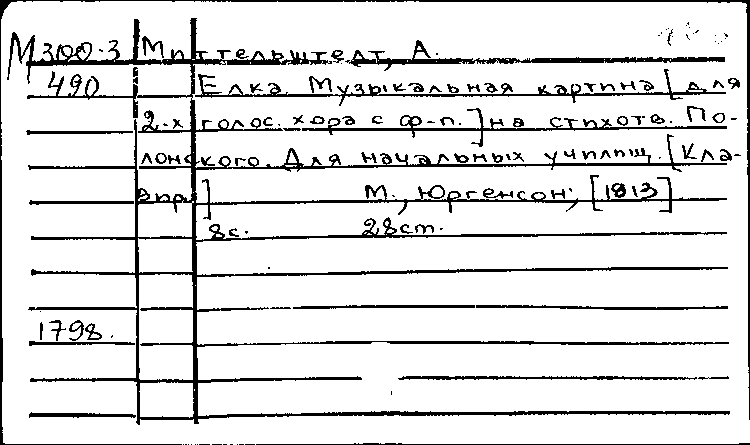 М300-3 Миттельштедт, А.
490 Елка. Музыкальная картина [для
2-х голос. хора с ф-п.] на стихотв. По-
лонского. Для начальных училищ. [Кла-
вир] М., Юргенсон, [1913]
8с. 28см.
1798.